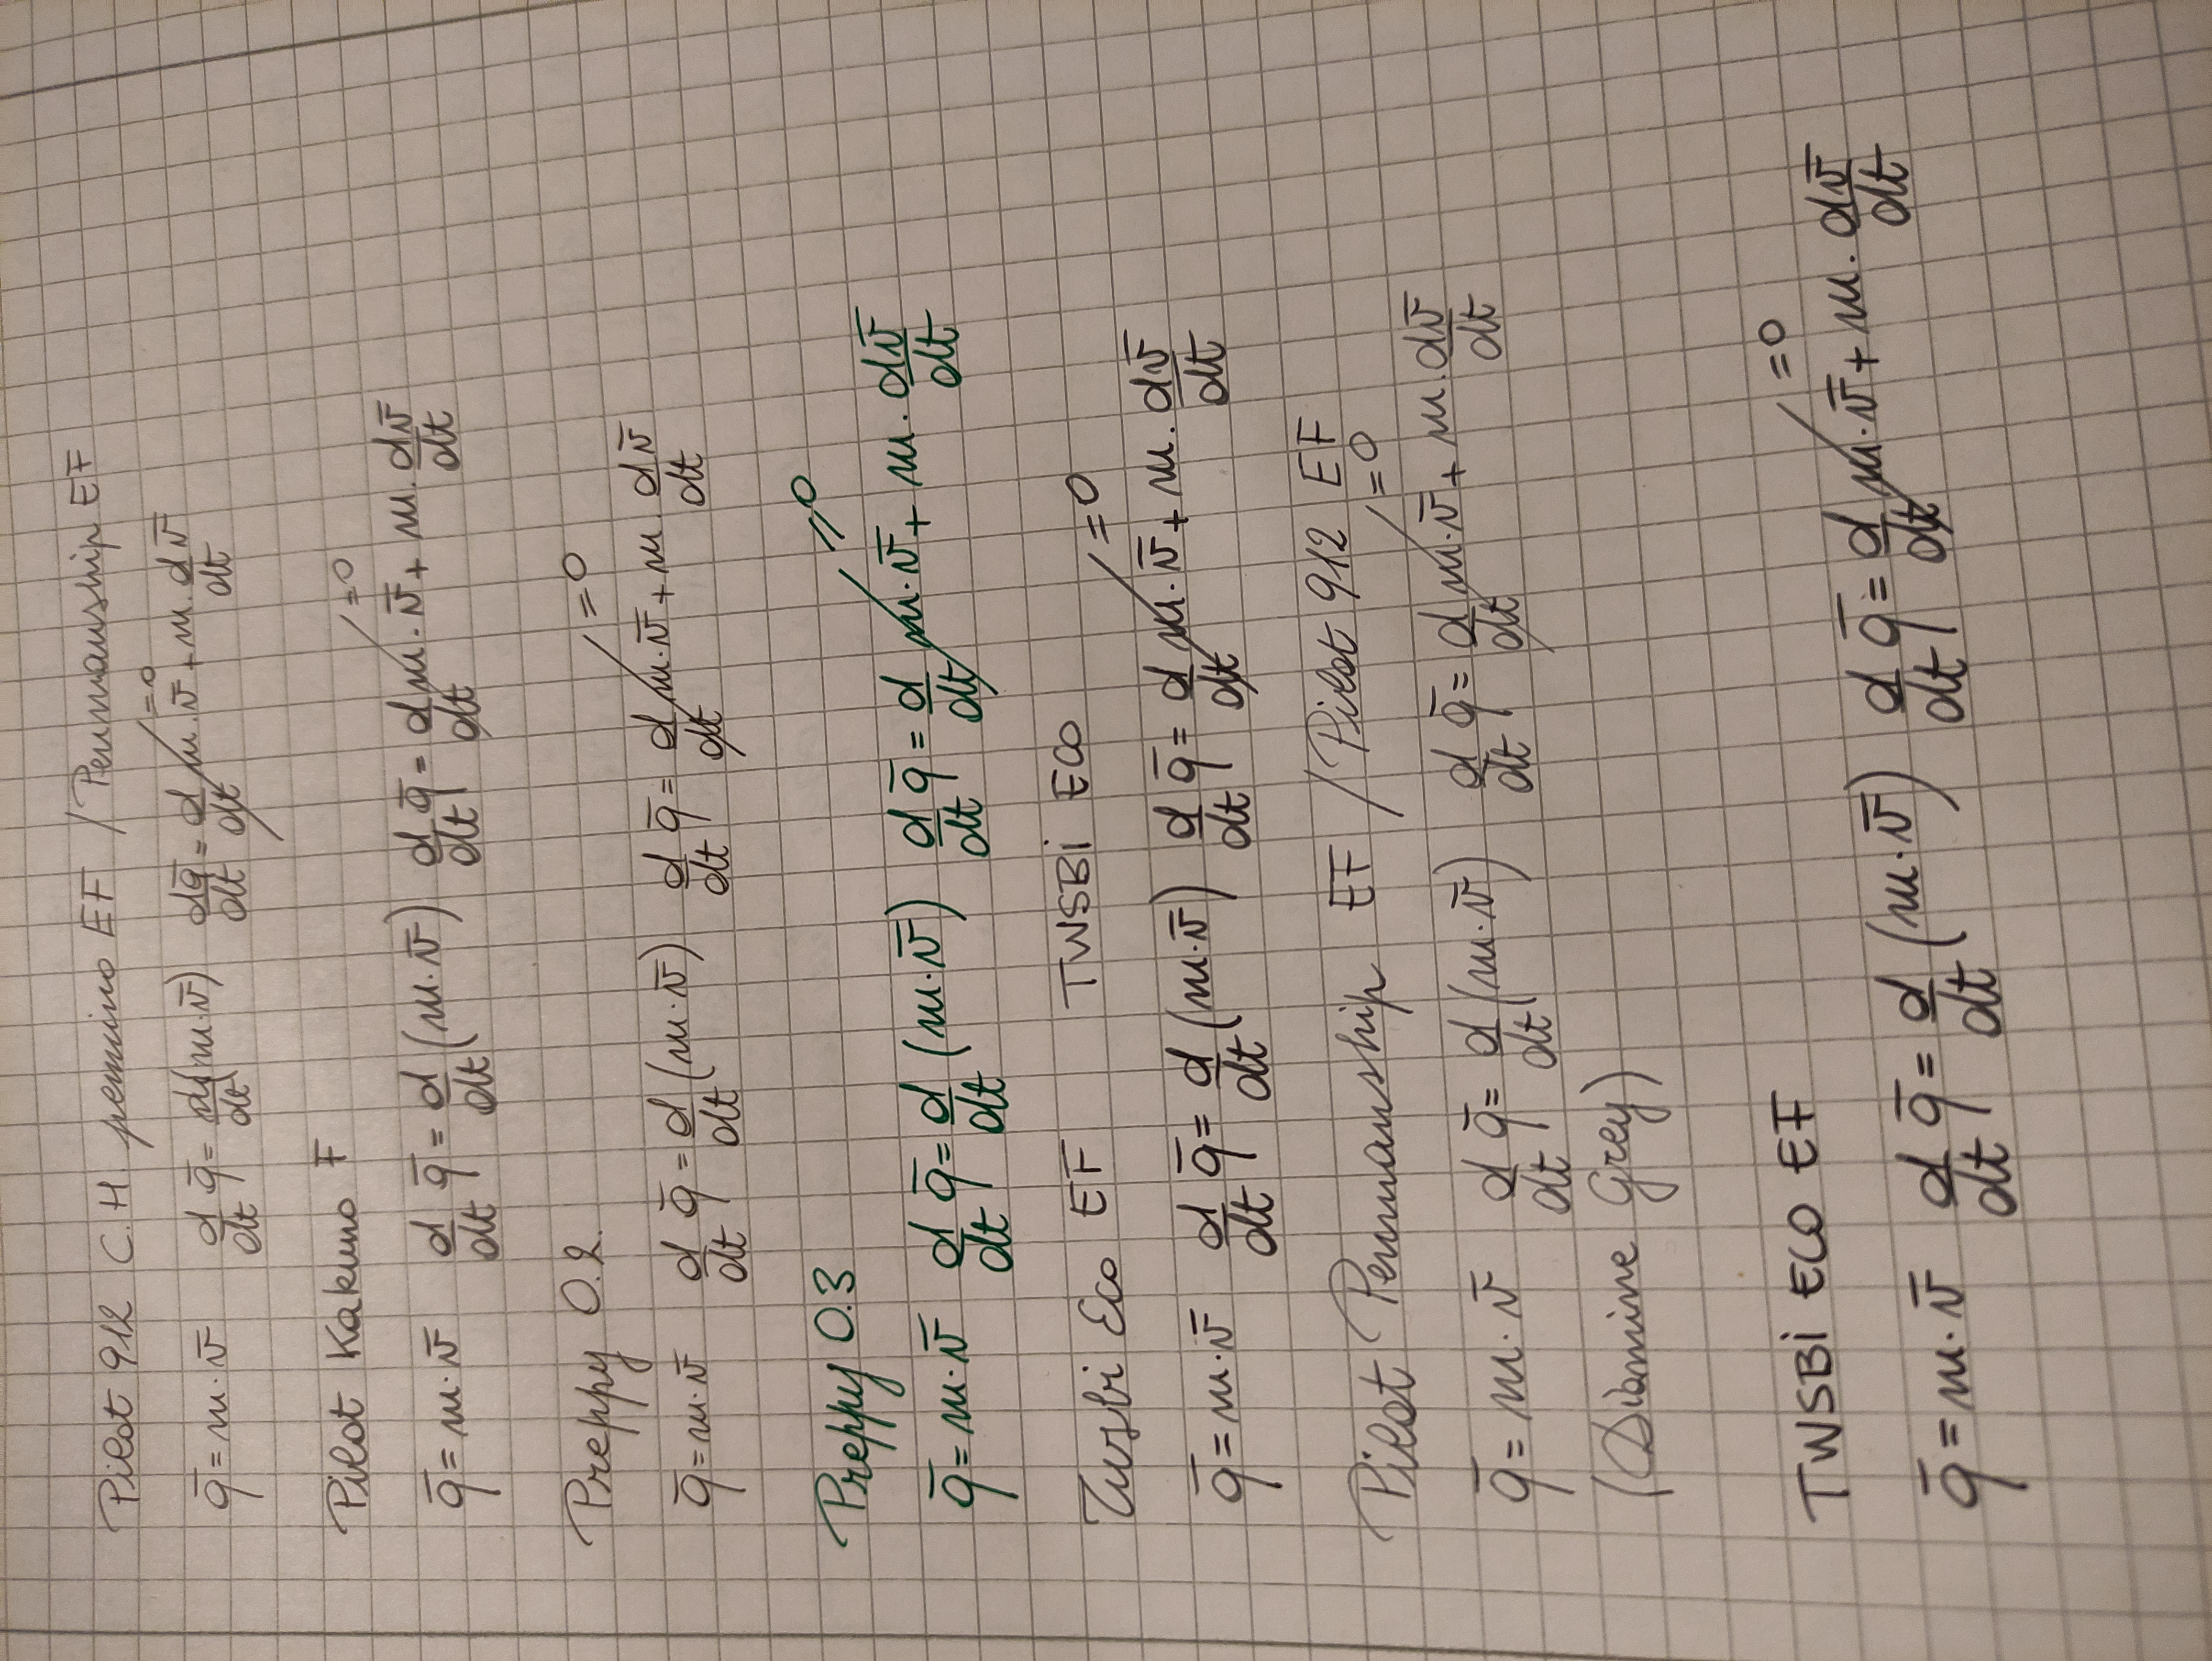 Pilot 912 C.H. pennino EF / Penmanship EF
q̄ = m·v̄   d/dt q̄ = d/dt(m·v̄)   dq̄/dt = d/dt m·v̄ + m·dv̄/dt   =0
Pilot Kakuno F
q̄ = m·v̄   d/dt q̄ = d/dt (m·v̄)   d/dt q̄ = d/dt m·v̄ + m·dv̄/dt   =0
Preppy 0.2
q̄ = m·v̄   d/dt q̄ = d/dt (m·v̄)   d/dt q̄ = d/dt m·v̄ + m·dv̄/dt   =0
Preppy 0.3
q̄ = m·v̄   d/dt q̄ = d/dt (m·v̄)   d/dt q̄ = d/dt m·v̄ + m·dv̄/dt   =0
Twsbi Eco EF   TWSBI ECO
q̄ = m·v̄   d/dt q̄ = d/dt (m·v̄)   d/dt q̄ = d/dt m·v̄ + m·dv̄/dt   =0
Pilot Penmanship EF / Pilot 912 EF
q̄ = m·v̄   d/dt q̄ = d/dt (m·v̄)   d/dt q̄ = d/dt m·v̄ + m·dv̄/dt   =0
(Diamine Grey)
TWSBI ECO EF
q̄ = m·v̄   d/dt q̄ = d/dt (m·v̄)   d/dt q̄ = d/dt m·v̄ + m·dv̄/dt   =0